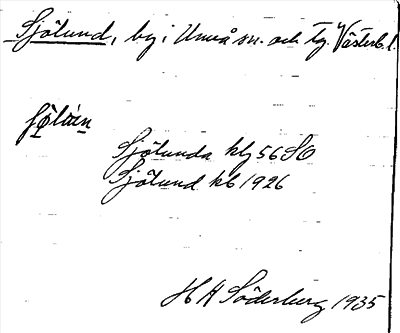 Sjölund, by i Umeå sn. och tg. Västerb. l.
Sjölunda kbg 56 SO
Sjölund kb 1926
H A Söderberg 1935